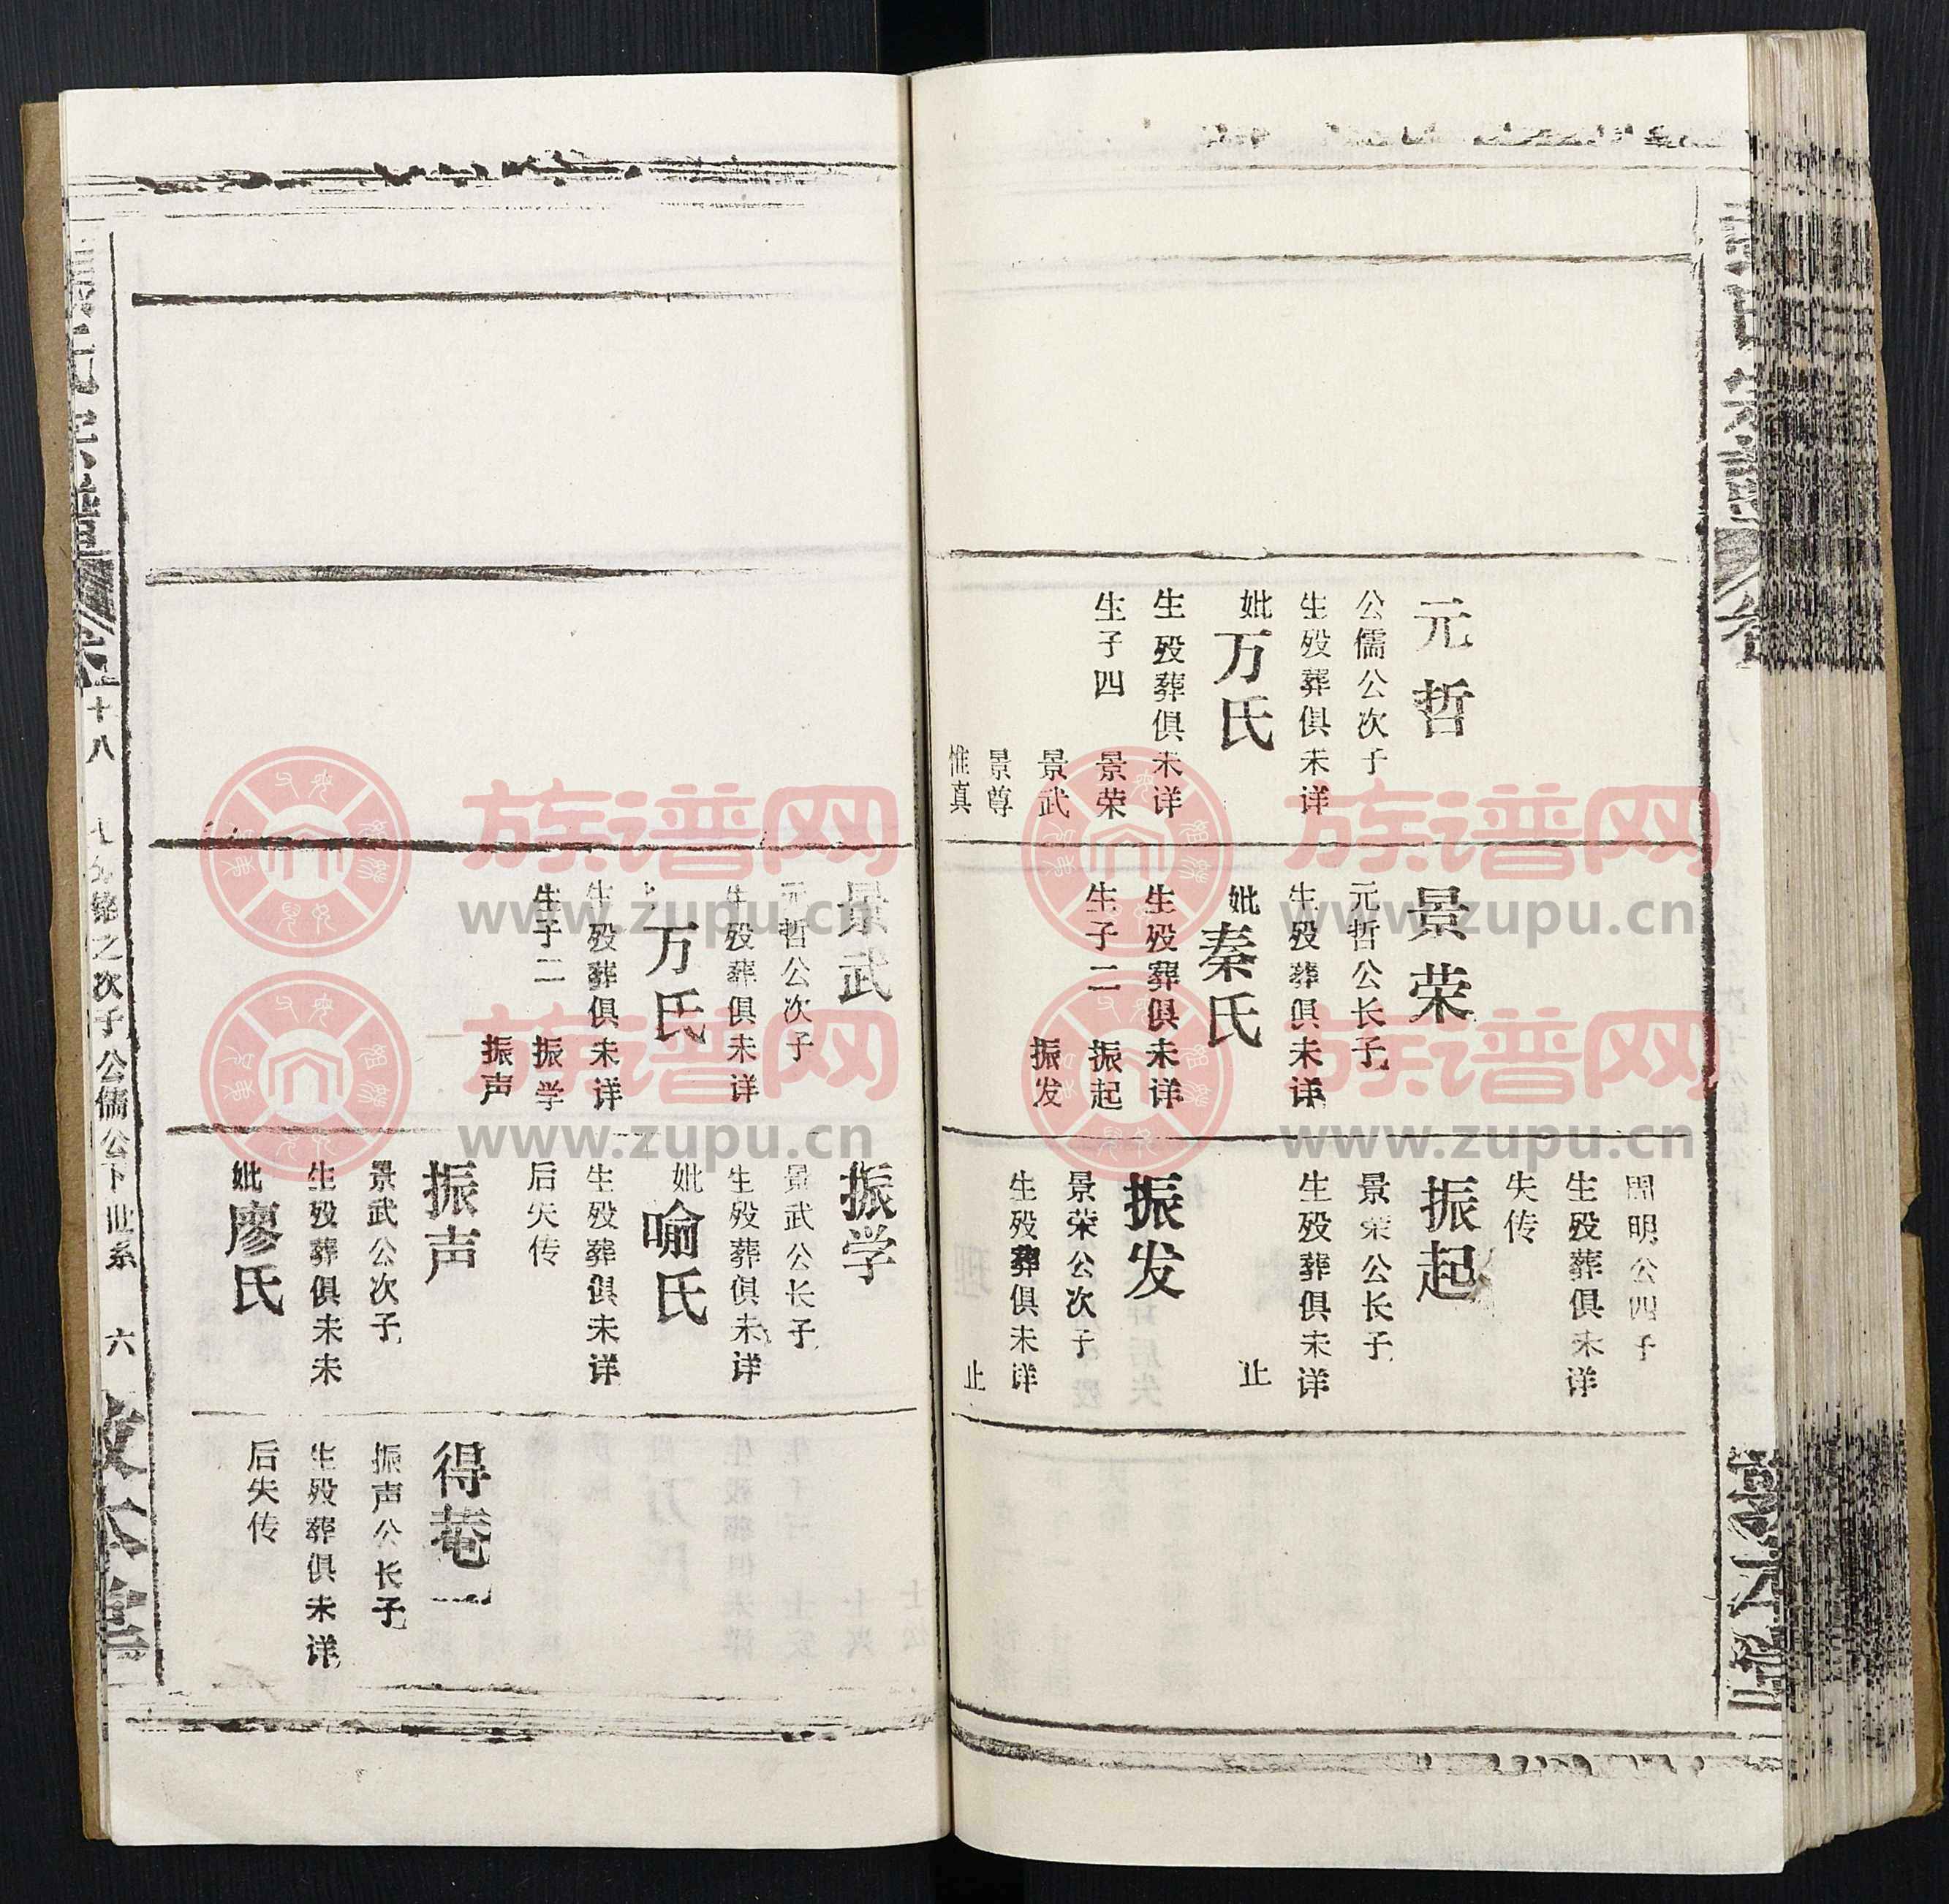 元哲
公儒公次子
生殁葬俱未详
妣万氏
生殁葬俱未详
生子四 景荣
景武
景尊
惟真
景荣
元哲公长子
生殁葬俱未详
妣秦氏
生殁葬俱未详
生子二 振起
振发
明公四子
生殁葬俱未详
失传
振起
景荣公长子
生殁葬俱未详
止
振发
景荣公次子
生殁葬俱未详
止
景武
元哲公次子
生殁葬俱未详
万氏
生殁葬俱未详
生子二 振学
振声
振学
景武公长子
生殁葬俱未详
妣喻氏
生殁葬俱未详
后失传
振声
景武公次子
生殁葬俱未未
妣廖氏
得菴
振声公长子
生殁葬俱未详
后失传
氏宗谱 卷十八 之次子公儒公下世系 六 敦本堂
族谱网
www.zupu.cn
族谱网
www.zupu.cn
族谱网
www.zupu.cn
族谱网
www.zupu.cn